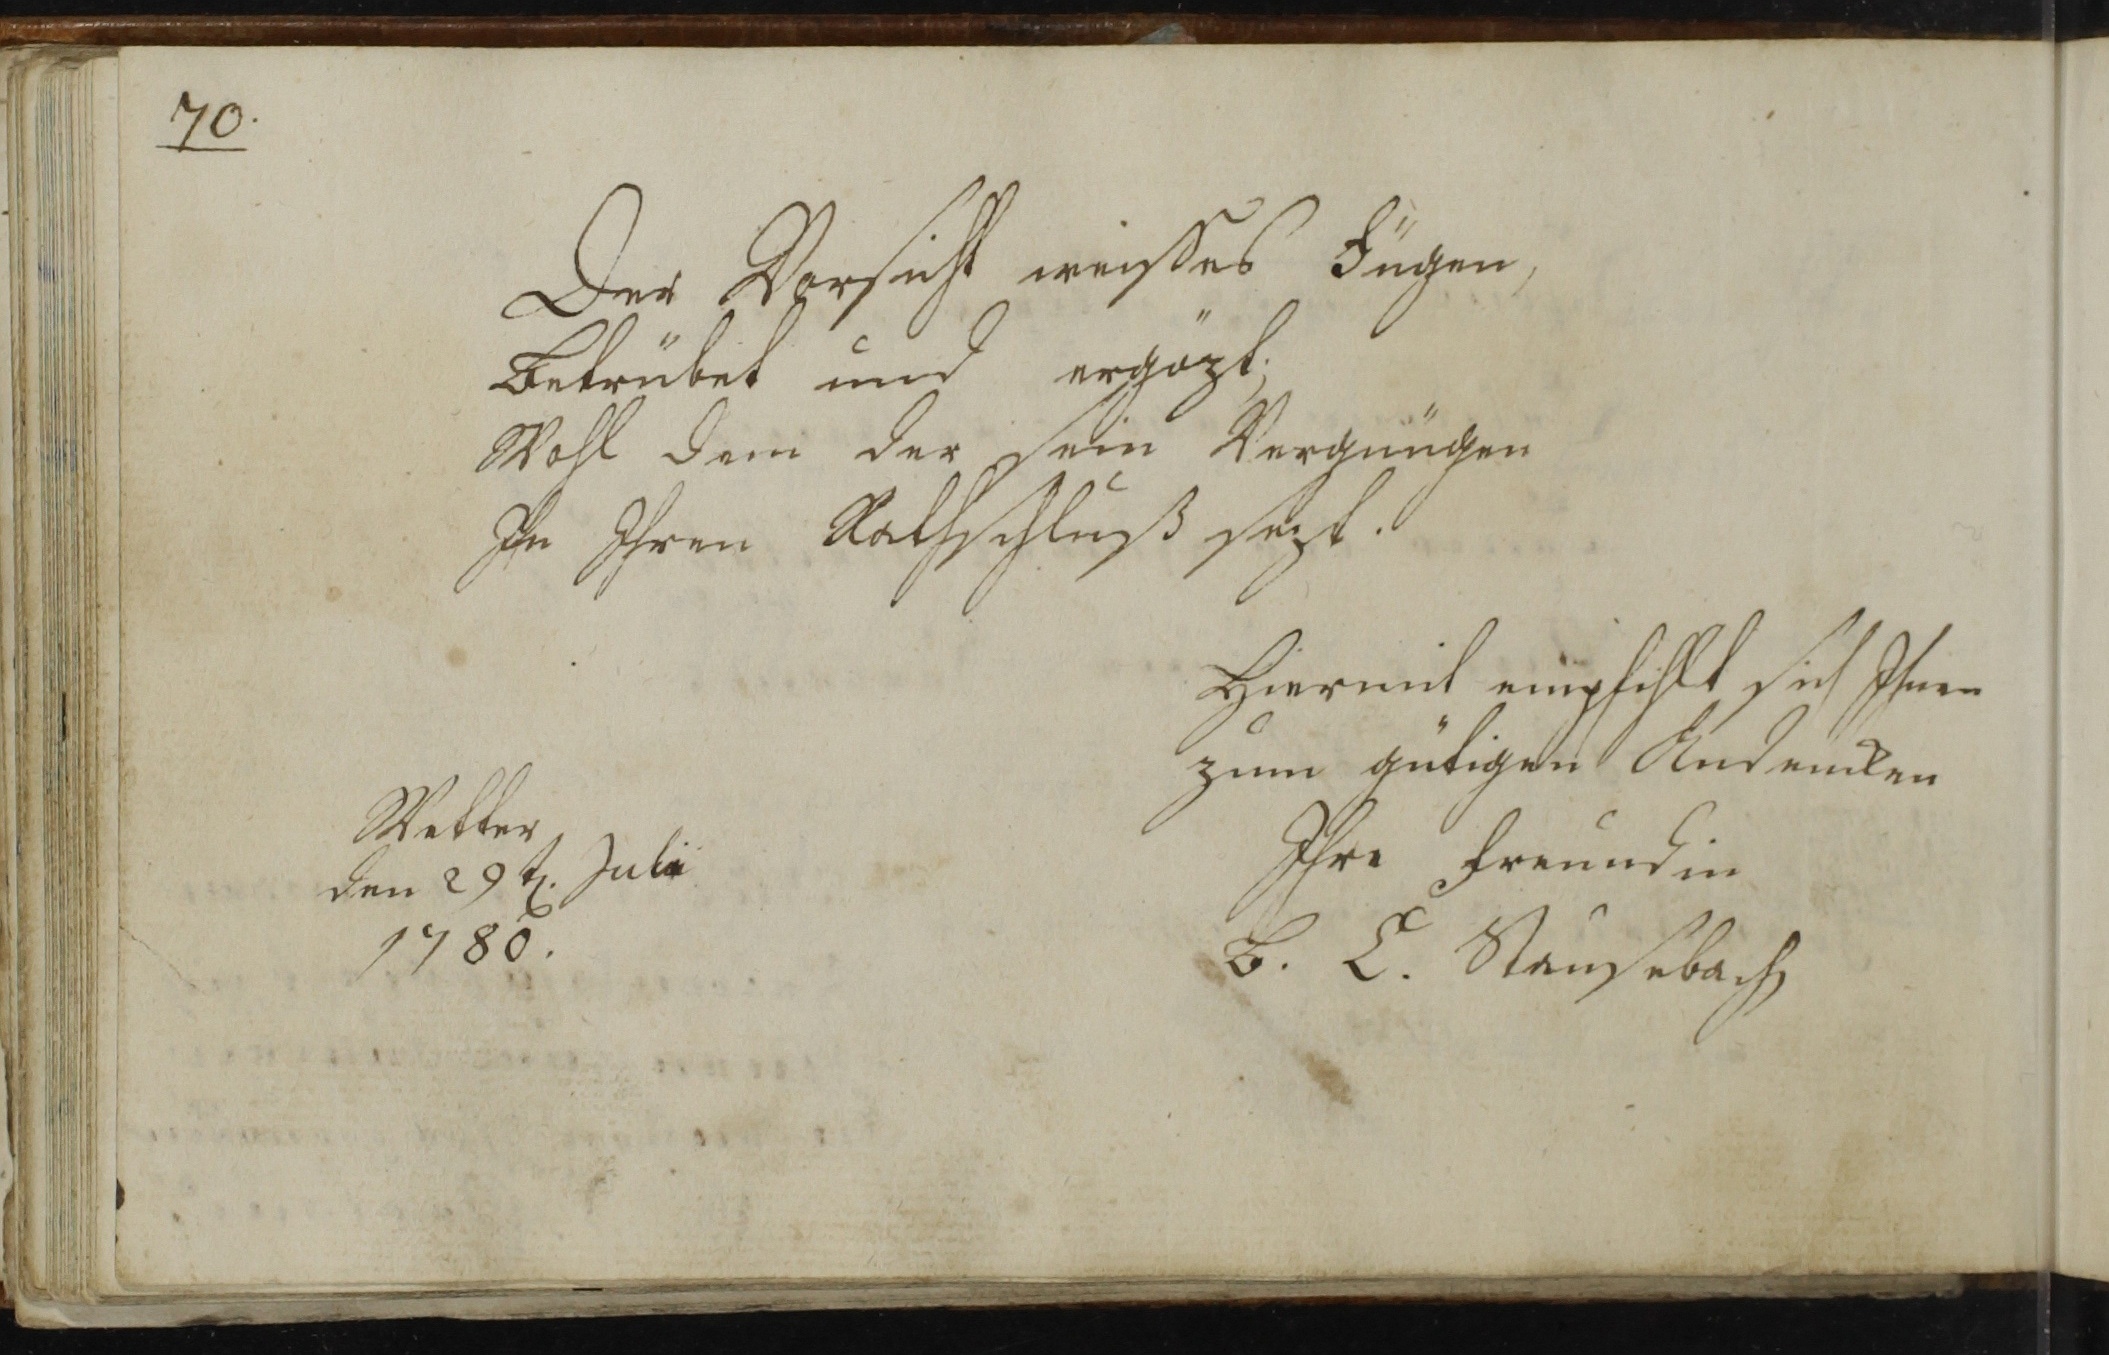 70.
Der Vorsicht weisses Fügen,
Betrübet und ergözt;
Wohl dem der sein Vergnügen
In Ihren Rathschluß sezt.
Hiermit empfihlt sich Ihnen
zum gütigen Andencken
Ihre Freundin
B. C. Stausebach
Wetter
den 29t. Julii
1780.